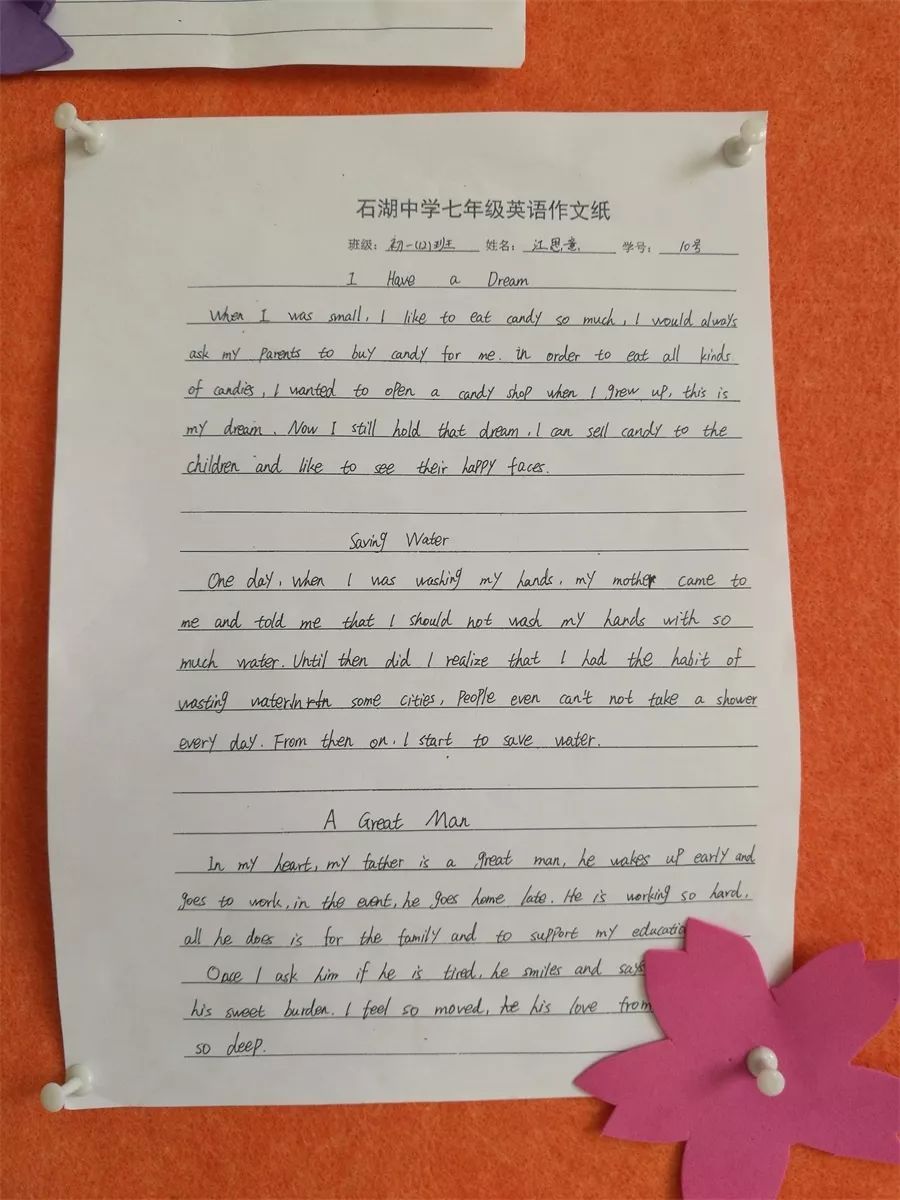 石湖中学七年级英语作文纸
班级: 初一(12)班 姓名: 江思童 学号: 10号
I Have a Dream
When I was small, I like to eat candy so much, I would always
ask my parents to buy candy for me. in order to eat all kinds
of candies, I wanted to open a candy shop when I grew up, this is
my dream. Now I still hold that dream, I can sell candy to the
children and like to see their happy faces.
Saving Water
One day, when I was washing my hands, my mother came to
me and told me that I should not wash my hands with so
much water. Until then did I realize that I had the habit of
wasting water. In some cities, People even can't not take a shower
every day. From then on, I start to save water.
A Great Man
In my heart, my father is a great man, he wakes up early and
goes to work, in the event, he goes home late. He is working so hard,
all he does is for the family and to support my
Once I ask him if he is tired, he smiles and says
his sweet burden. I feel so moved, he his love from
so deep.